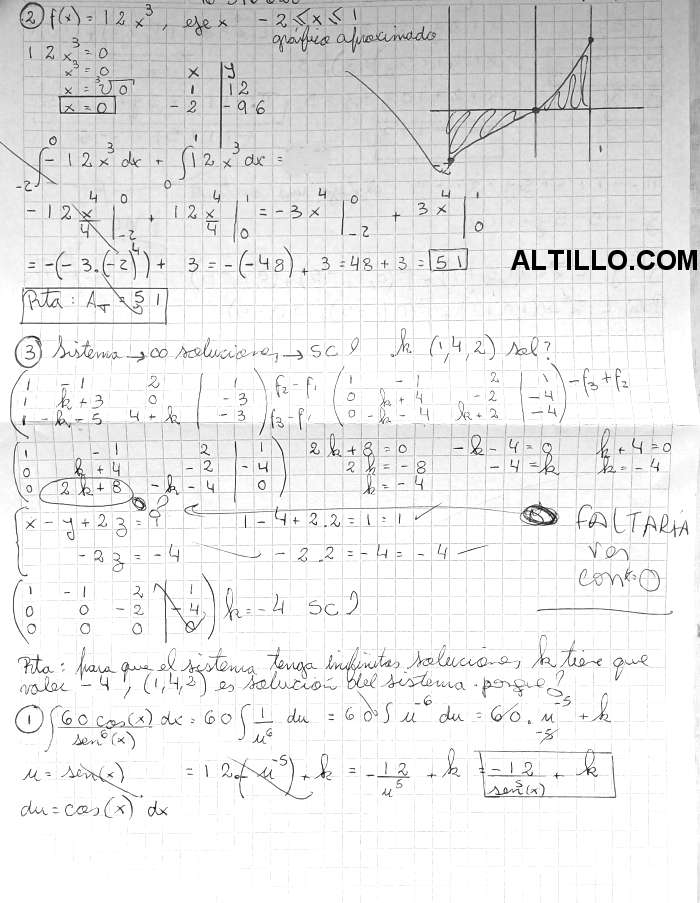 ② f(x) = 12x³, eje x -2 ≤ x ≤ 1
gráfico aproximado
12x³ = 0
x³ = 0
x = ³√0
x = 0
x | y
1 | 12
-2 | -96
∫₋₂⁰ -12x³ dx + ∫₀¹ 12x³ dx =
-12 x⁴/4 |₋₂⁰ + 12 x⁴/4 |₀¹ = -3x⁴ |₋₂⁰ + 3x⁴ |₀¹
= -(-3.(-2)⁴) + 3 = -(-48) + 3 = 48 + 3 = 51
ALTILLO.COM
Rta: A_T = 51
③ Sistema → ∞ soluciones → SCI k (1,4,2) sol?
( 1 -1 2 | 1 ) ( 1 -1 2 | 1 )
( 1 k+3 0 | -3 ) f₂-f₁ ( 0 k+4 -2 | -4 ) -f₃+f₂
( 1 -k-5 4+k | -3 ) f₃-f₁ ( 0 -k-4 k+2 | -4 )
( 1 -1 2 | 1 ) 2k+8=0 -k-4=0 k+4=0
( 0 k+4 -2 | -4 ) 2k=-8 -4=k k=-4
( 0 2k+8 -k-4 | 0 ) k=-4
?
x - y + 2z = 1 1-4+2.2=1=1 ✓
-2z = -4 -2.2=-4=-4 ✓
FALTARÍA
ver
con k=0
( 1 -1 2 | 1 )
( 0 0 -2 | -4 ) k=-4 SCI
( 0 0 0 | 0 )
Rta: para que el sistema tenga infinitas soluciones, k tiene que
valer -4, (1,4,2) es solución del sistema porque?
① ∫ 60 cos(x)/sen⁶(x) dx = 60 ∫ 1/u⁶ du = 60 ∫ u⁻⁶ du = 60 . u⁻⁵/-5 + k
u = sen(x) = 12.(-u⁻⁵) + k = -12/u⁵ + k = -12/sen⁵(x) + k
du = cos(x) dx